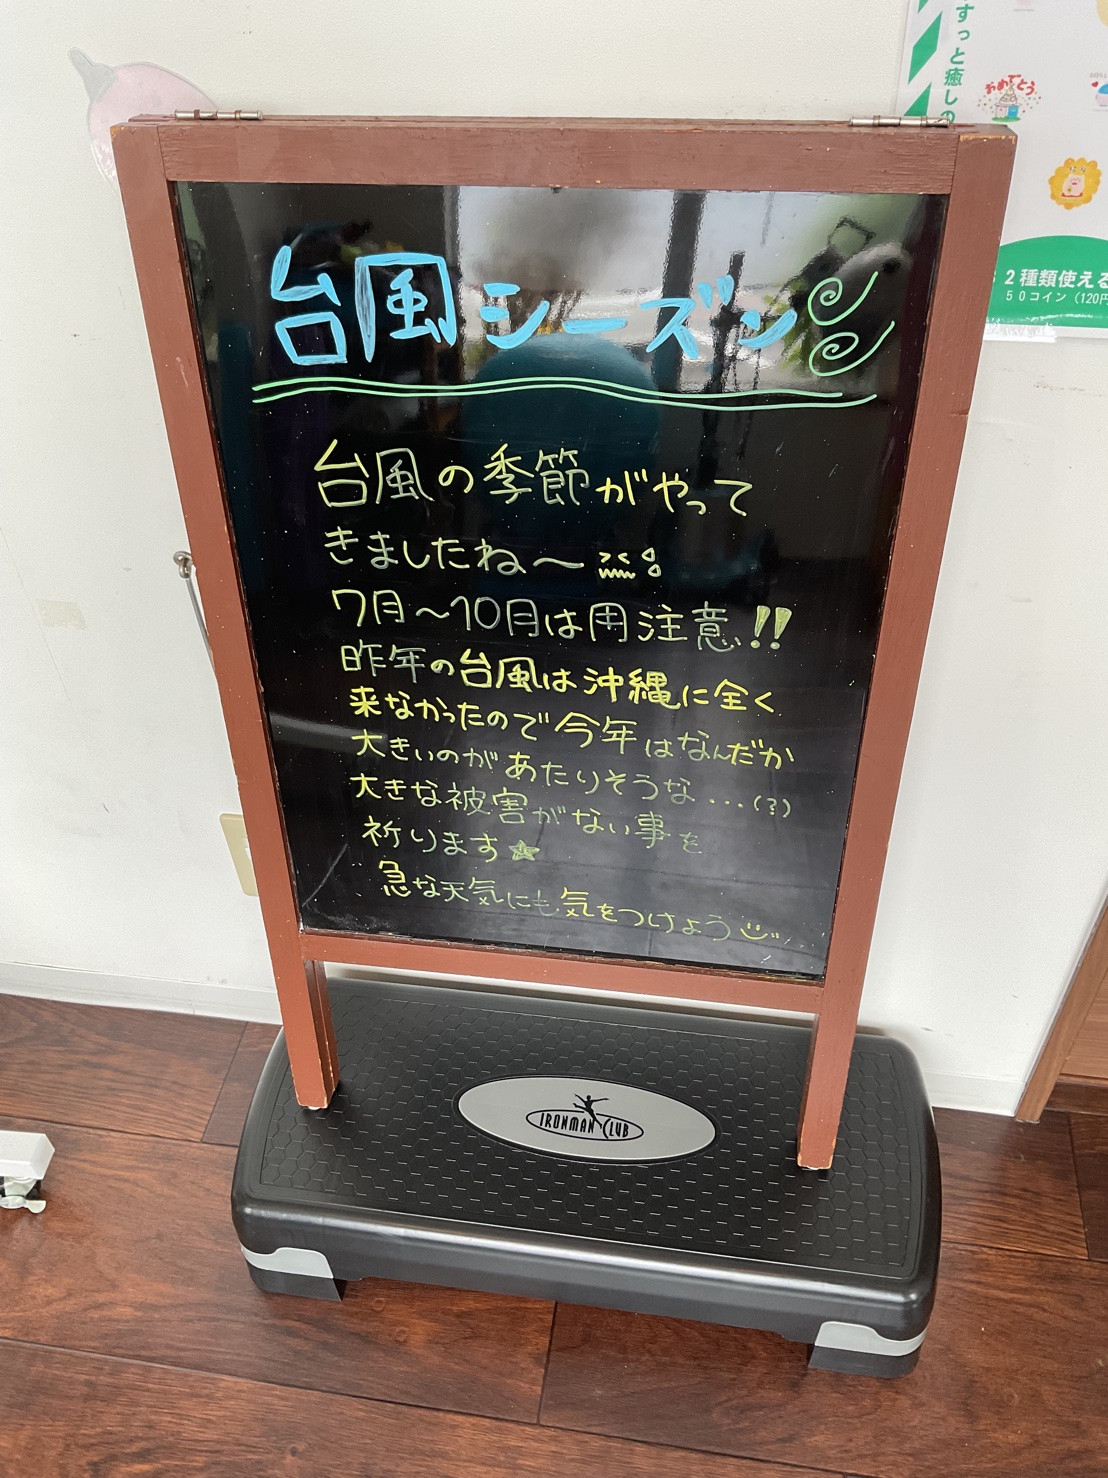 台風シーズン
台風の季節がやって
きましたね〜
7月〜10月は用注意!!
昨年の台風は沖縄に全く
来なかったので今年はなんだか
大きいのがあたりそうな...(?)
大きな被害がない事を
祈ります☆
急な天気にも気をつけよう
IRONMAN CLUB
すっと癒しの
おめでとう
2種類使える
50コイン(120円